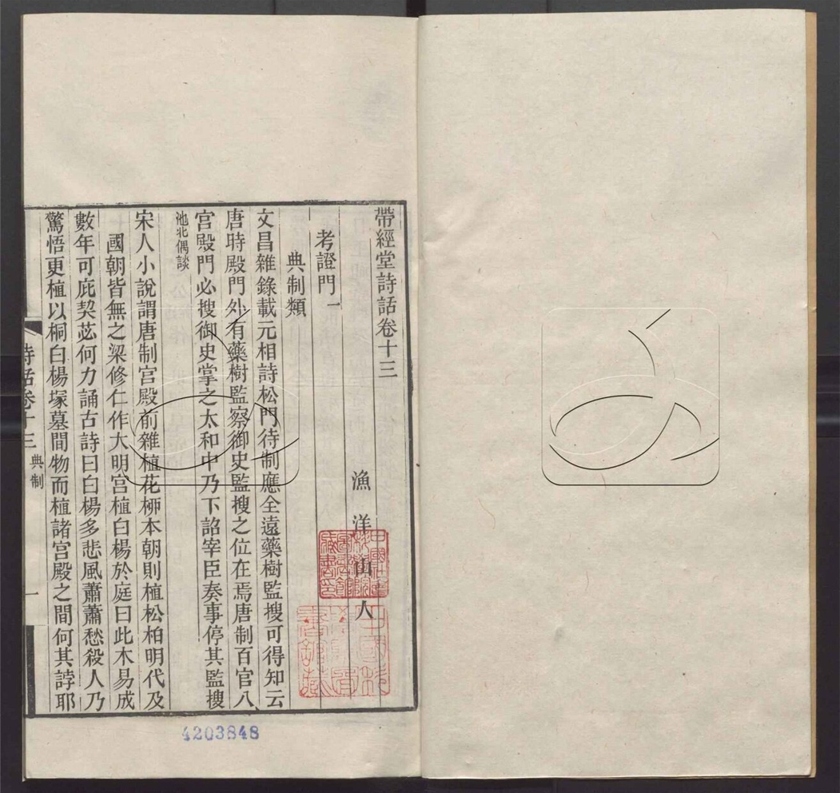 帶經堂詩話卷十三
漁洋山人
考證門一
典制類
文昌雜錄載元相詩松門待制應全遠藥樹監搜可得知云
唐時殿門外有藥樹監察御史監搜之位在焉唐制百官入
宮殿門必搜御史掌之太和中乃下詔宰臣奏事停其監搜
池北偶談
宋人小說謂唐制宮殿前雜植花柳本朝則植松柏明代及
國朝皆無之梁修仁作大明宮植白楊於庭曰此木易成
數年可庇契苾何力誦古詩曰白楊多悲風蕭蕭愁殺人乃
驚悟更植以桐白楊塚墓間物而植諸宮殿之間何其誖耶
詩話卷十三 典制 一
4203848